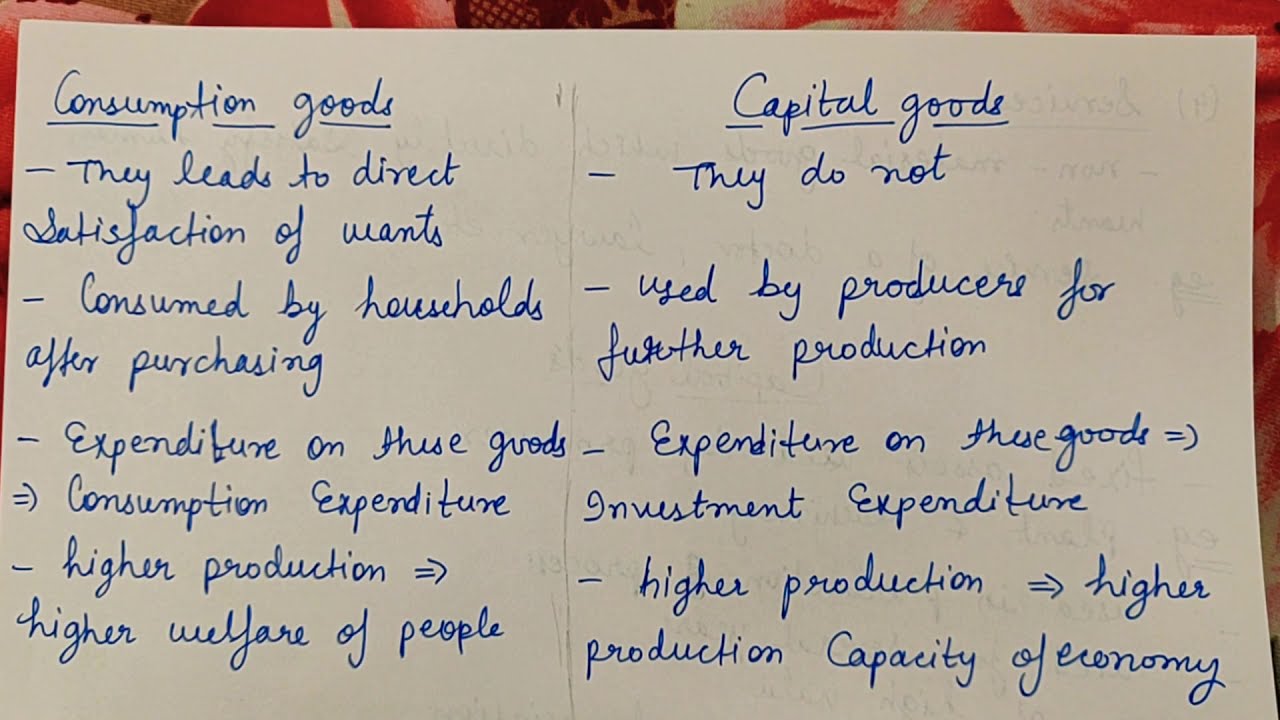 Consumption goods
- They leads to direct
Satisfaction of wants
- Consumed by households
after purchasing
- Expenditure on these goods
⇒ Consumption Expenditure
- higher production ⇒
higher welfare of people
Capital goods
- They do not
- used by producers for
further production
- Expenditure on these goods ⇒
Investment Expenditure
- higher production ⇒ higher
production Capacity of economy